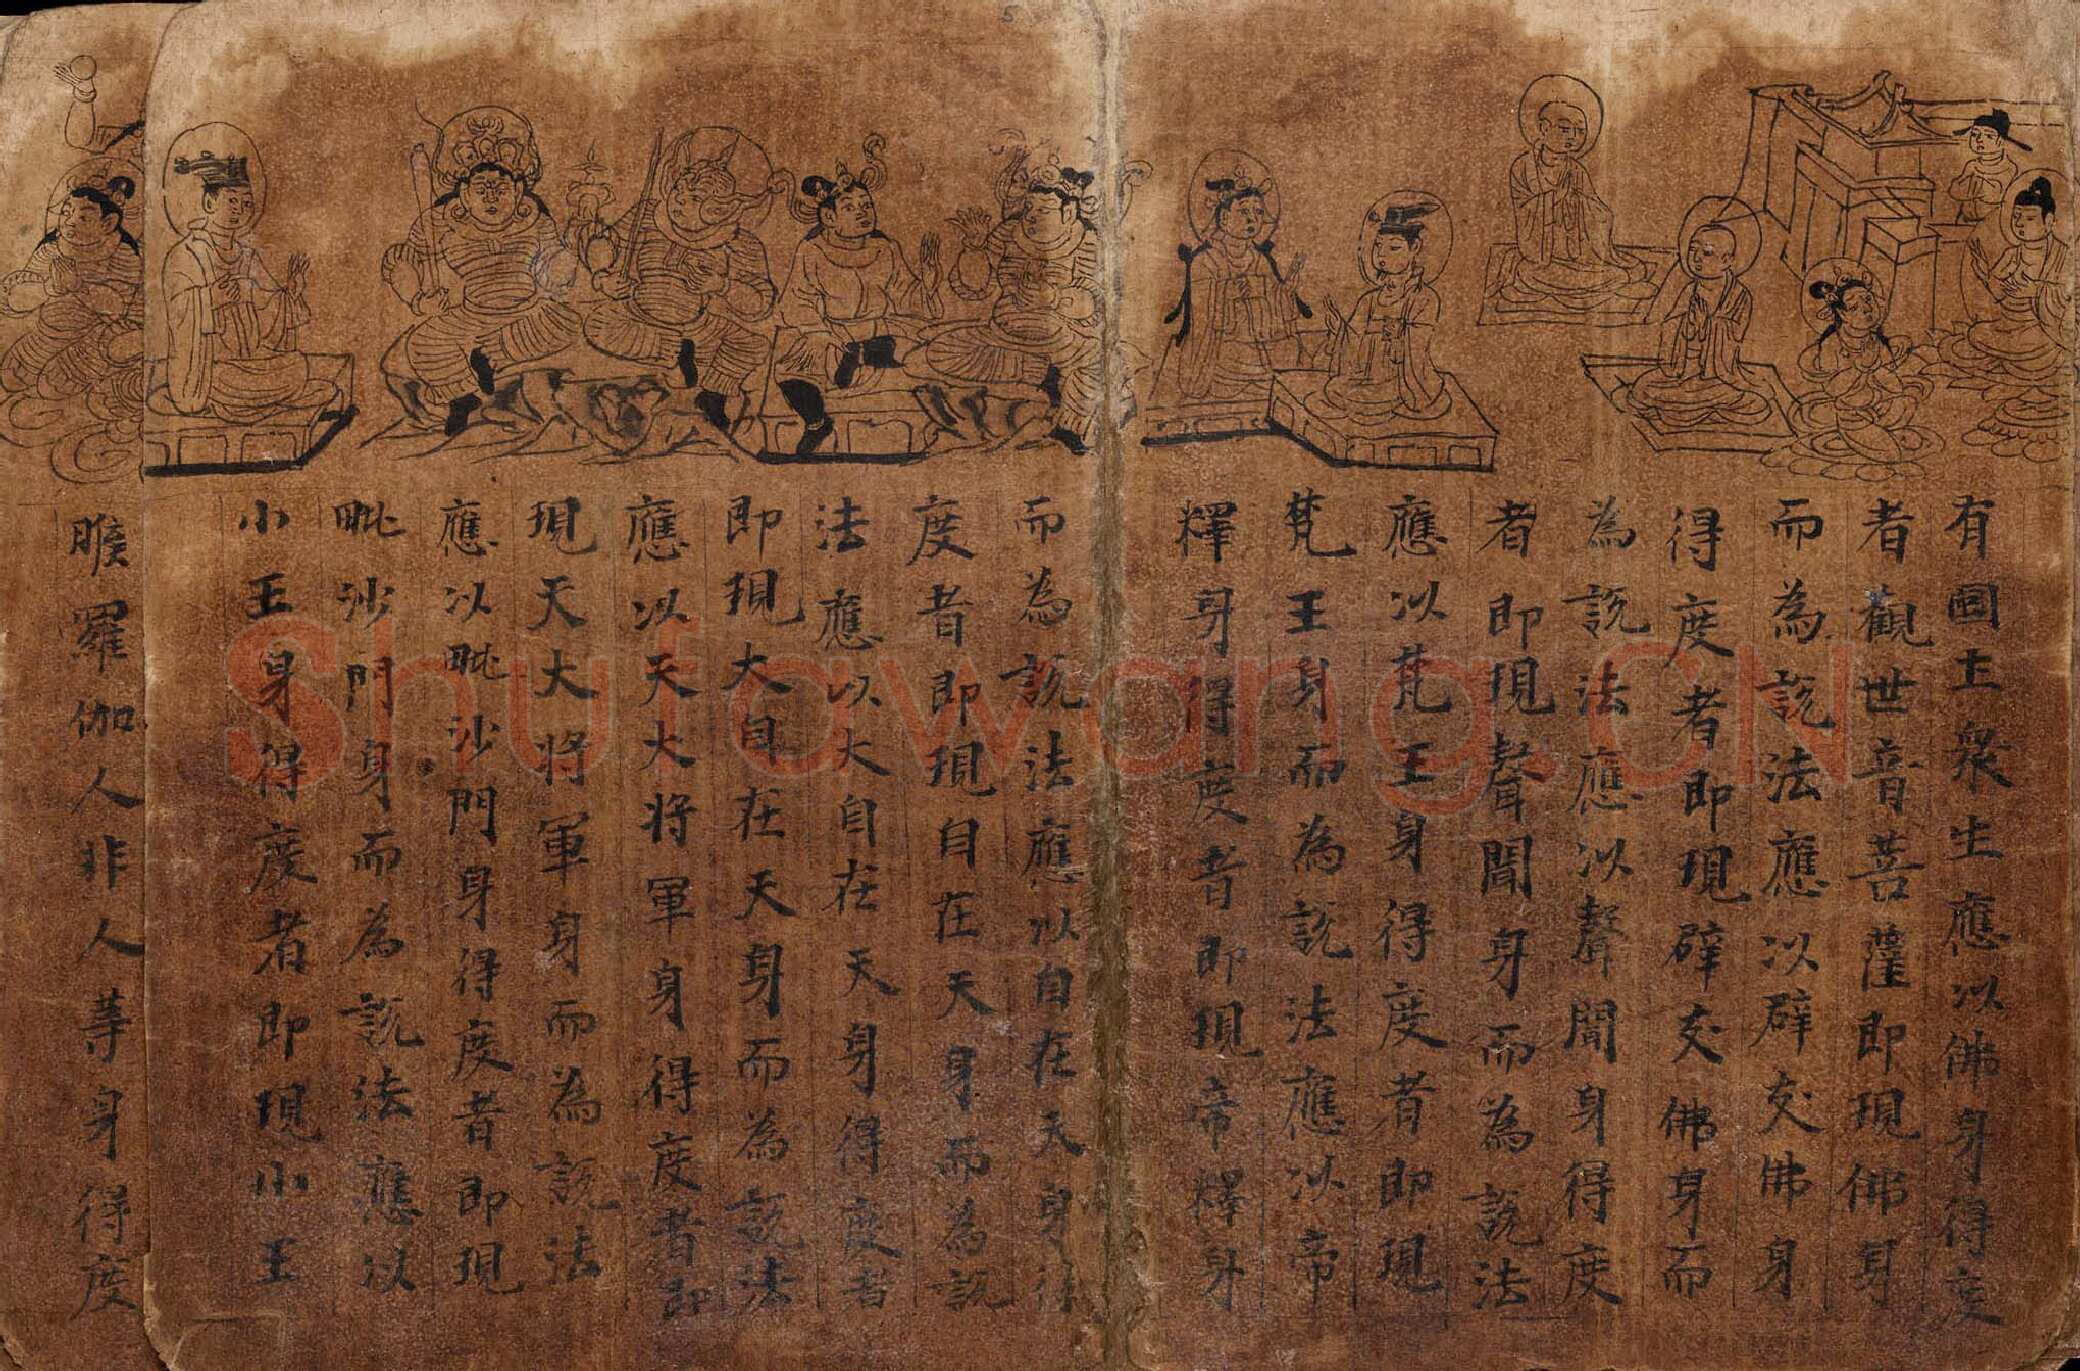 有國土衆生應以佛身得度
者觀世音菩薩即現佛身
而為説法應以辟支佛身
得度者即現辟支佛身而
為説法應以聲聞身得度
者即現聲聞身而為説法
應以梵王身得度者即現
梵王身而為説法應以帝
釋身得度者即現帝釋身
而為説法應以自在天身得
度者即現自在天身而為説
法應以大自在天身得度者
即現大自在天身而為説法
應以天大将軍身得度者即
現天大将軍身而為説法
應以毗沙門身得度者即現
毗沙門身而為説法應以
小王身得度者即現小王
睺羅伽人非人等身得度
5
Shufawang.CN